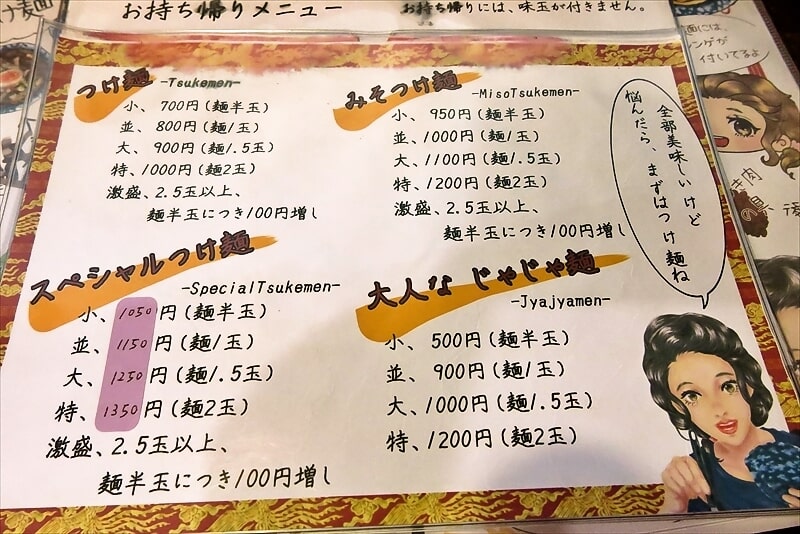 お持ち帰りメニュー
お持ち帰りには、味玉が付きません。
つけ麺 -Tsukemen-
小、700円(麺半玉)
並、800円(麺1玉)
大、900円(麺1.5玉)
特、1000円(麺2玉)
激盛、2.5玉以上、
麺半玉につき100円増し
みそつけ麺 -MisoTsukemen-
小、950円(麺半玉)
並、1000円(麺1玉)
大、1100円(麺1.5玉)
特、1200円(麺2玉)
激盛、2.5玉以上、
麺半玉につき100円増し
スペシャルつけ麺
-SpecialTsukemen-
小、1050円(麺半玉)
並、1150円(麺1玉)
大、1250円(麺1.5玉)
特、1350円(麺2玉)
激盛、2.5玉以上、
麺半玉につき100円増し
大人な じゃじゃ麺
-Jyajyamen-
小、500円(麺半玉)
並、900円(麺1玉)
大、1000円(麺1.5玉)
特、1200円(麺2玉)
全部美味しいけど
悩んだら、まずはつけ麺ね
け麺
麺には、
レンゲが
付いてるよ